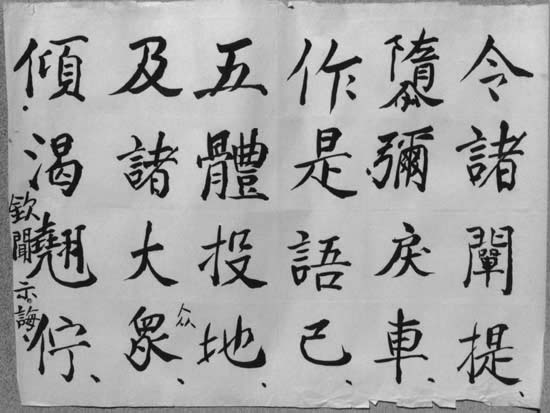 令諸闡提、
隳彌戾車、
作是語已、
五體投地、
及諸大眾、
众
傾渴翹佇、
欽聞示誨、